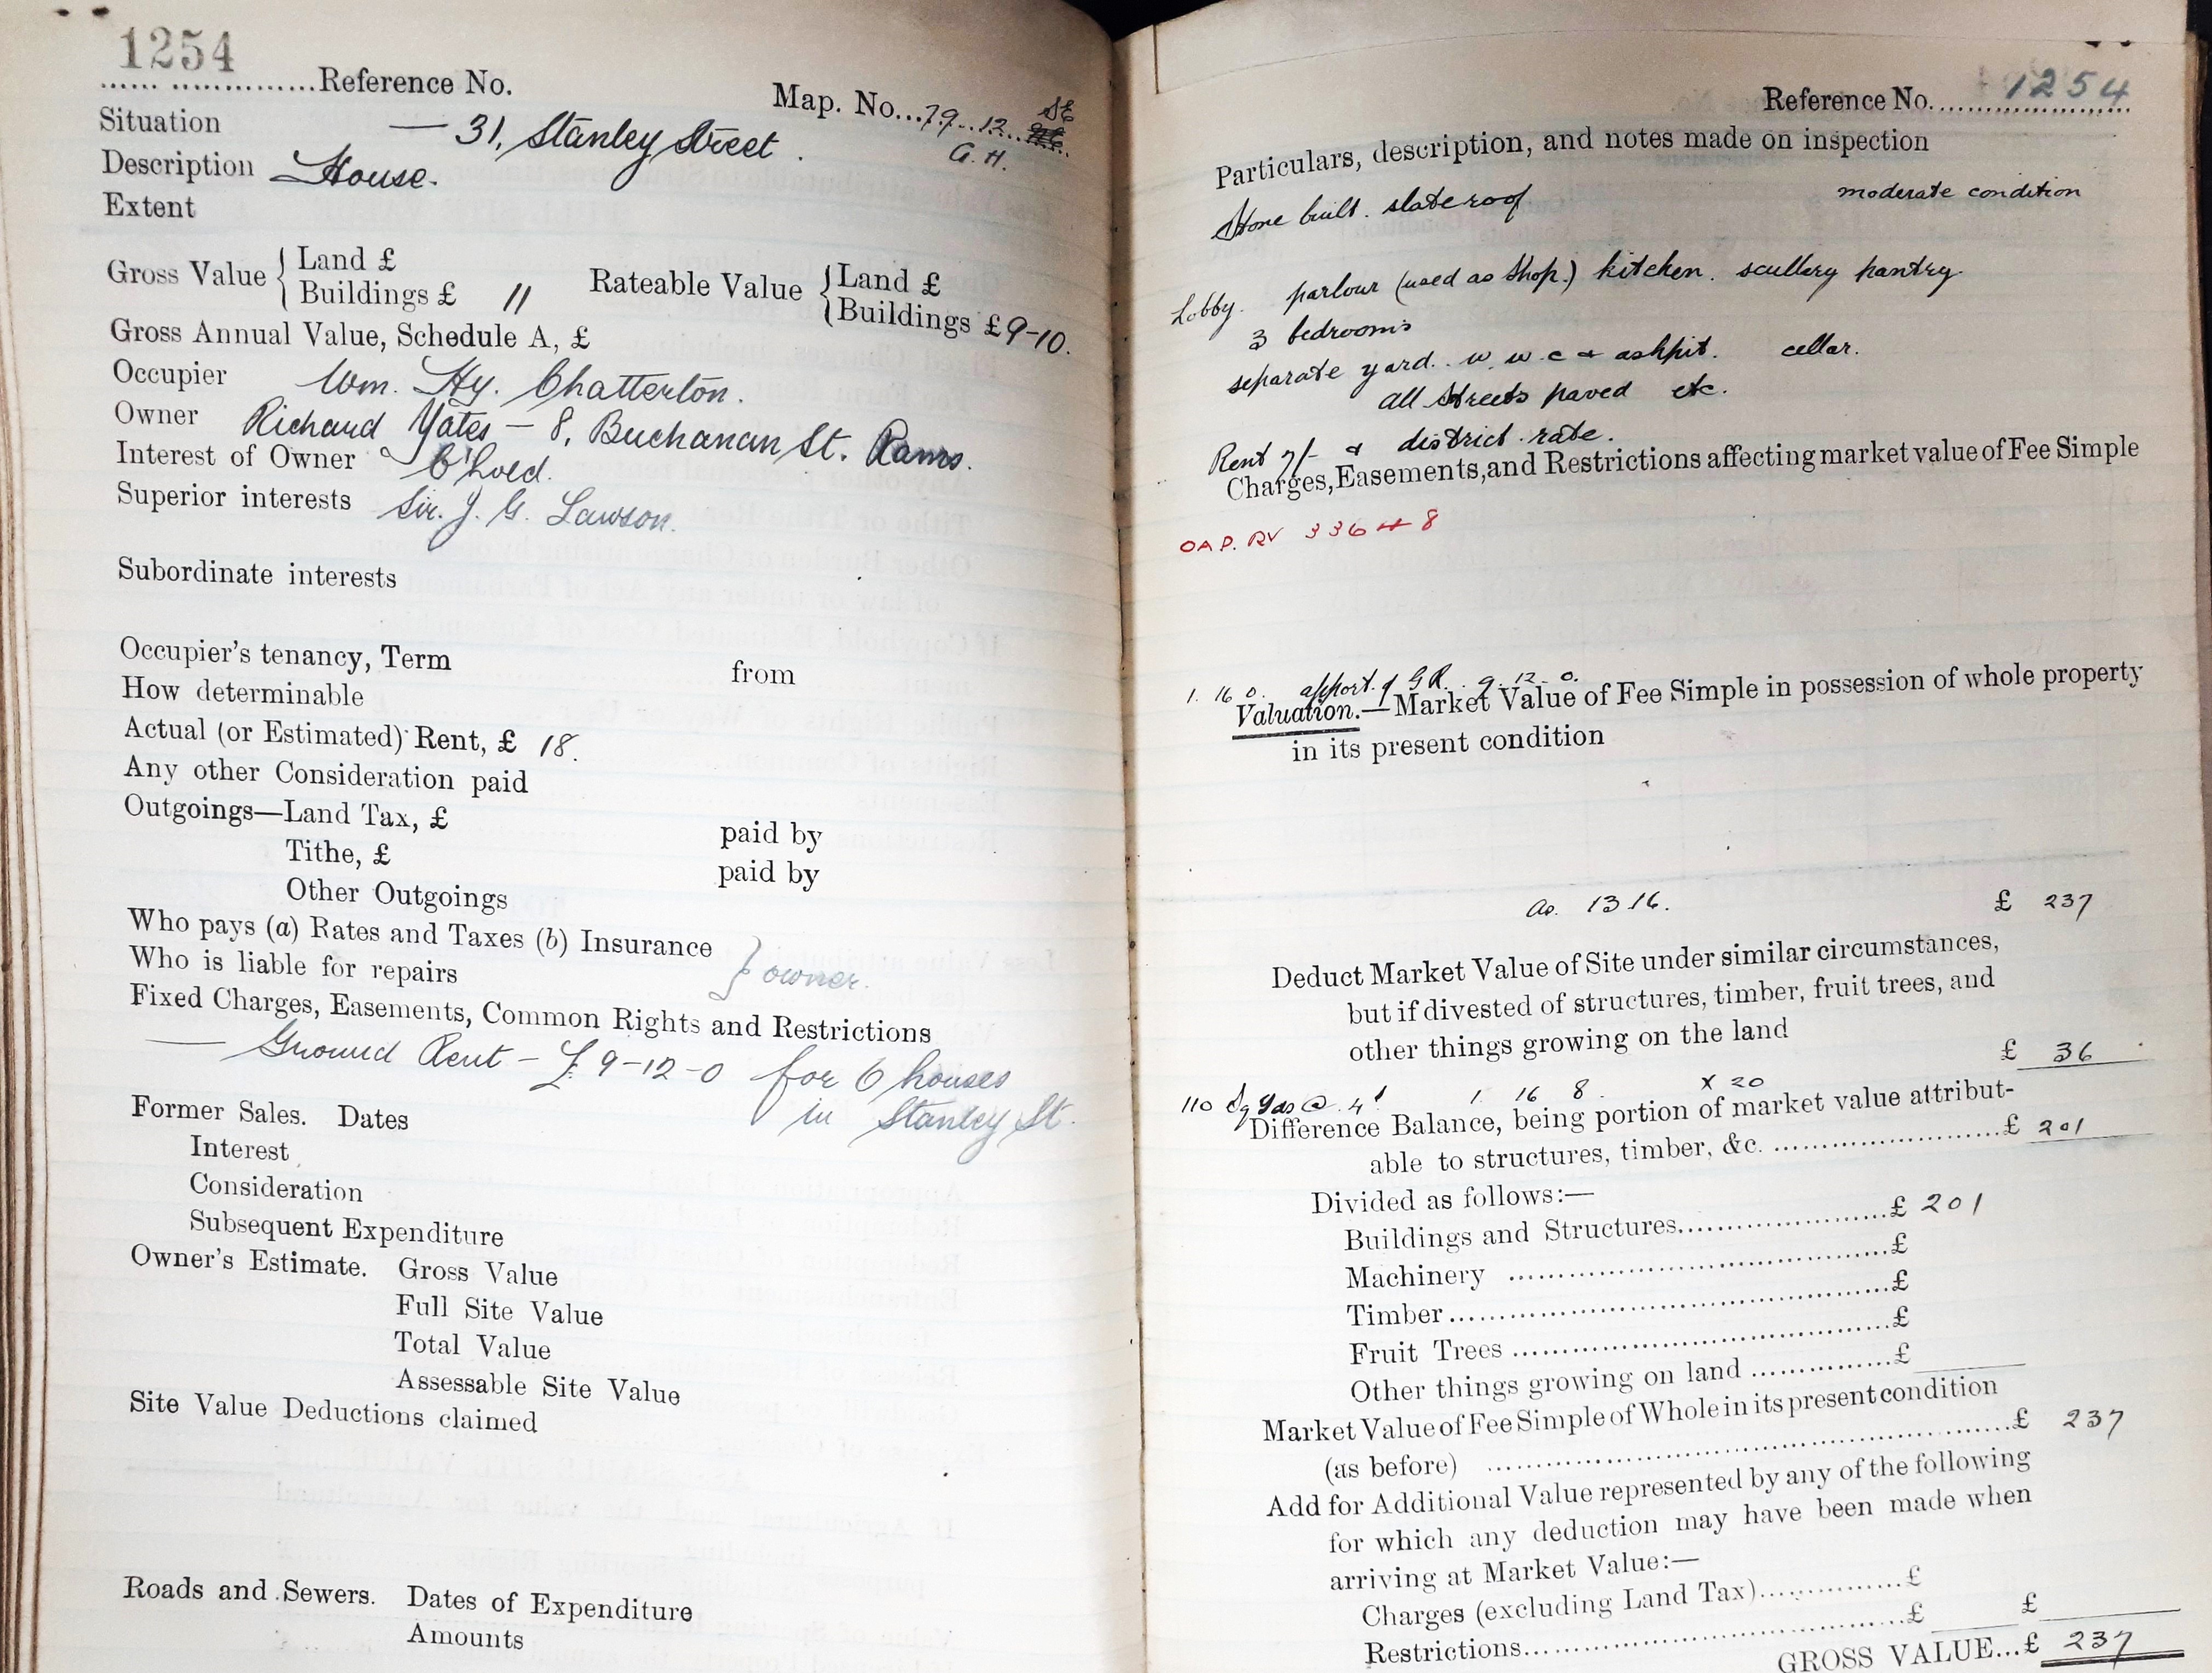 1254
...... ...............Reference No.
Map. No...79..12...SE
G. H.
Situation — 31, Stanley Street.
Description House.
Extent
Gross Value { Land £
Buildings £ 11
Rateable Value { Land £
Buildings £ 9-10.
Gross Annual Value, Schedule A, £
Occupier Wm. Hy. Chatterton.
Owner Richard Yates — 8, Buchanan St. Rams.
Interest of Owner C'hold.
Superior interests Sir. J. G. Lawson.
Subordinate interests
Occupier's tenancy, Term from
How determinable
Actual (or Estimated) Rent, £ 18.
Any other Consideration paid
Outgoings—Land Tax, £ paid by
Tithe, £ paid by
Other Outgoings
Who pays (a) Rates and Taxes (b) Insurance
Who is liable for repairs } owner.
Fixed Charges, Easements, Common Rights and Restrictions
— Ground Rent — £9-12-0 for 6 houses
in Stanley St.
Former Sales. Dates
Interest
Consideration
Subsequent Expenditure
Owner's Estimate. Gross Value
Full Site Value
Total Value
Assessable Site Value
Site Value Deductions claimed
Roads and Sewers. Dates of Expenditure
Amounts
Reference No. 1254
Particulars, description, and notes made on inspection
Stone built. slate roof moderate condition
Lobby. parlour (used as Shop.) kitchen. scullery pantry.
3 bedrooms
separate yard. w. w. c & ashpit. cellar.
all Streets paved etc.
Rent 7/- & district rate.
Charges, Easements, and Restrictions affecting market value of Fee Simple
OAP. RV 336 8
1. 16 0. apport. of GR. 9. 12. 0.
Valuation.—Market Value of Fee Simple in possession of whole property
in its present condition
As. 1316. £ 237
Deduct Market Value of Site under similar circumstances,
but if divested of structures, timber, fruit trees, and
other things growing on the land £ 36
110 Sq Yds @ 4d 1. 16 8 x 20
Difference Balance, being portion of market value attribut-
able to structures, timber, &c. ..............................£ 201
Divided as follows:—
Buildings and Structures........................£ 201
Machinery ..........................................£
Timber................................................£
Fruit Trees ..........................................£
Other things growing on land ...............£
Market Value of Fee Simple of Whole in its present condition
(as before) ..........................................................£ 237
Add for Additional Value represented by any of the following
for which any deduction may have been made when
arriving at Market Value:—
Charges (excluding Land Tax)................£
Restrictions..........................................£ £
GROSS VALUE...£ 237